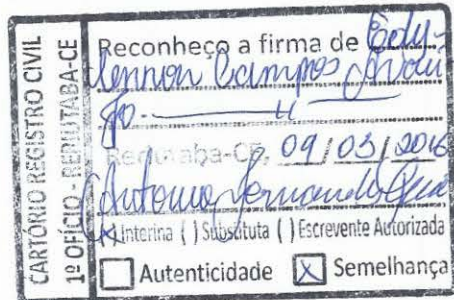 CARTÓRIO REGISTRO CIVIL
1º OFÍCIO - RERIUTABA-CE
Reconheço a firma de Edu-
lennon Campos Araú
jo. ——
Reriutaba-CE, 09/03/2016
(X) Interina ( ) Substituta ( ) Escrevente Autorizada
Autenticidade [X] Semelhança